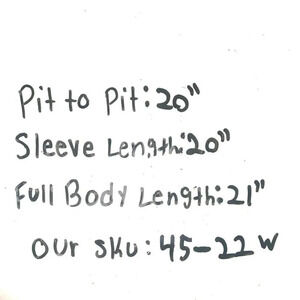 Pit to Pit: 20"
Sleeve Length: 20"
Full Body Length: 21"
Our sku: 45-22w